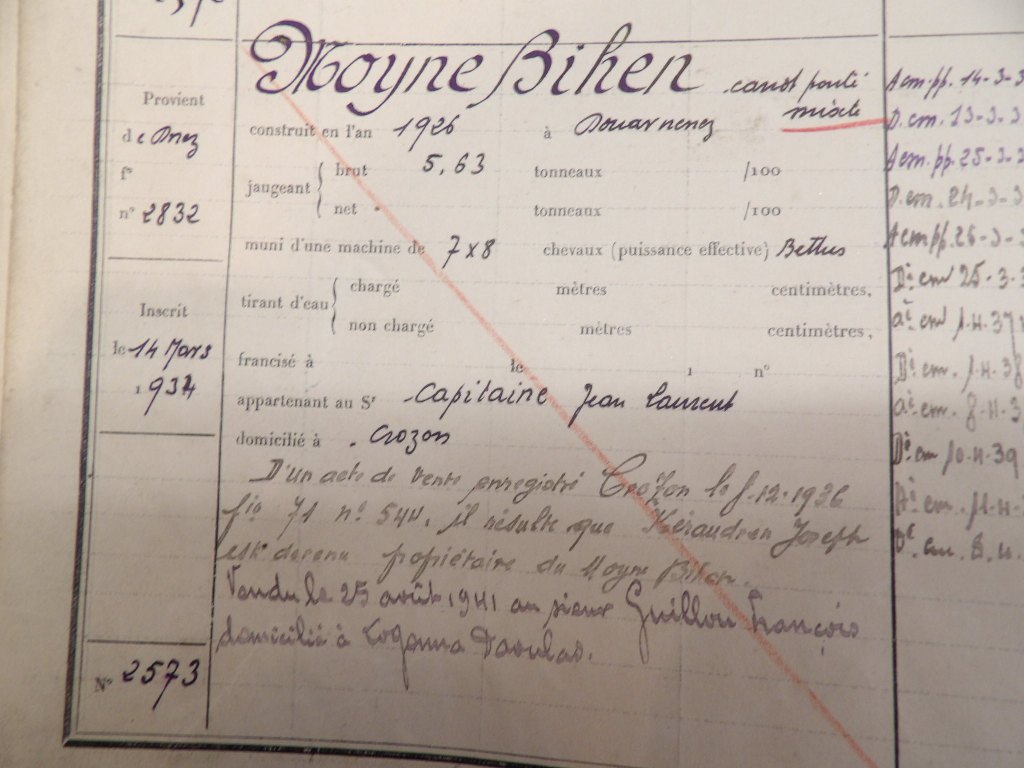 Moyne Bihen canot ponté
mixte
Provient
de Dnez
f°
n° 2832
Inscrit
le 14 Mars
1934
N° 2573
construit en l'an 1926 à Douarnenez
jaugeant brut 5,63 tonneaux /100
net tonneaux /100
muni d'une machine de 7x8 chevaux (puissance effective) Bettus
tirant d'eau chargé mètres centimètres,
non chargé mètres centimètres,
francisé à le 1 n°
appartenant au Sr Capitaine Jean Laurent
domicilié à Crozon
D'un acte de vente enregistré Crozon le 12.1936
fio 71 n° 544, il résulte que Kéraudren Joseph
est devenu propiétaire du Moyne Bihen.
Vendu le 25 août 1941 au sieur Guillou François
domicilié à Logonna Daoulas.
A em. pp. 14-3-3
D. em. 13-3-3
A em. pp. 25-3-3
D. em. 24-3-3
A em pp. 26-3-3
Dt em 25-3-3
at em 1-4-37
Dt em. 1-4-38
at em. 8-4-3
Dt em 10-4-39
At em. 11-4-